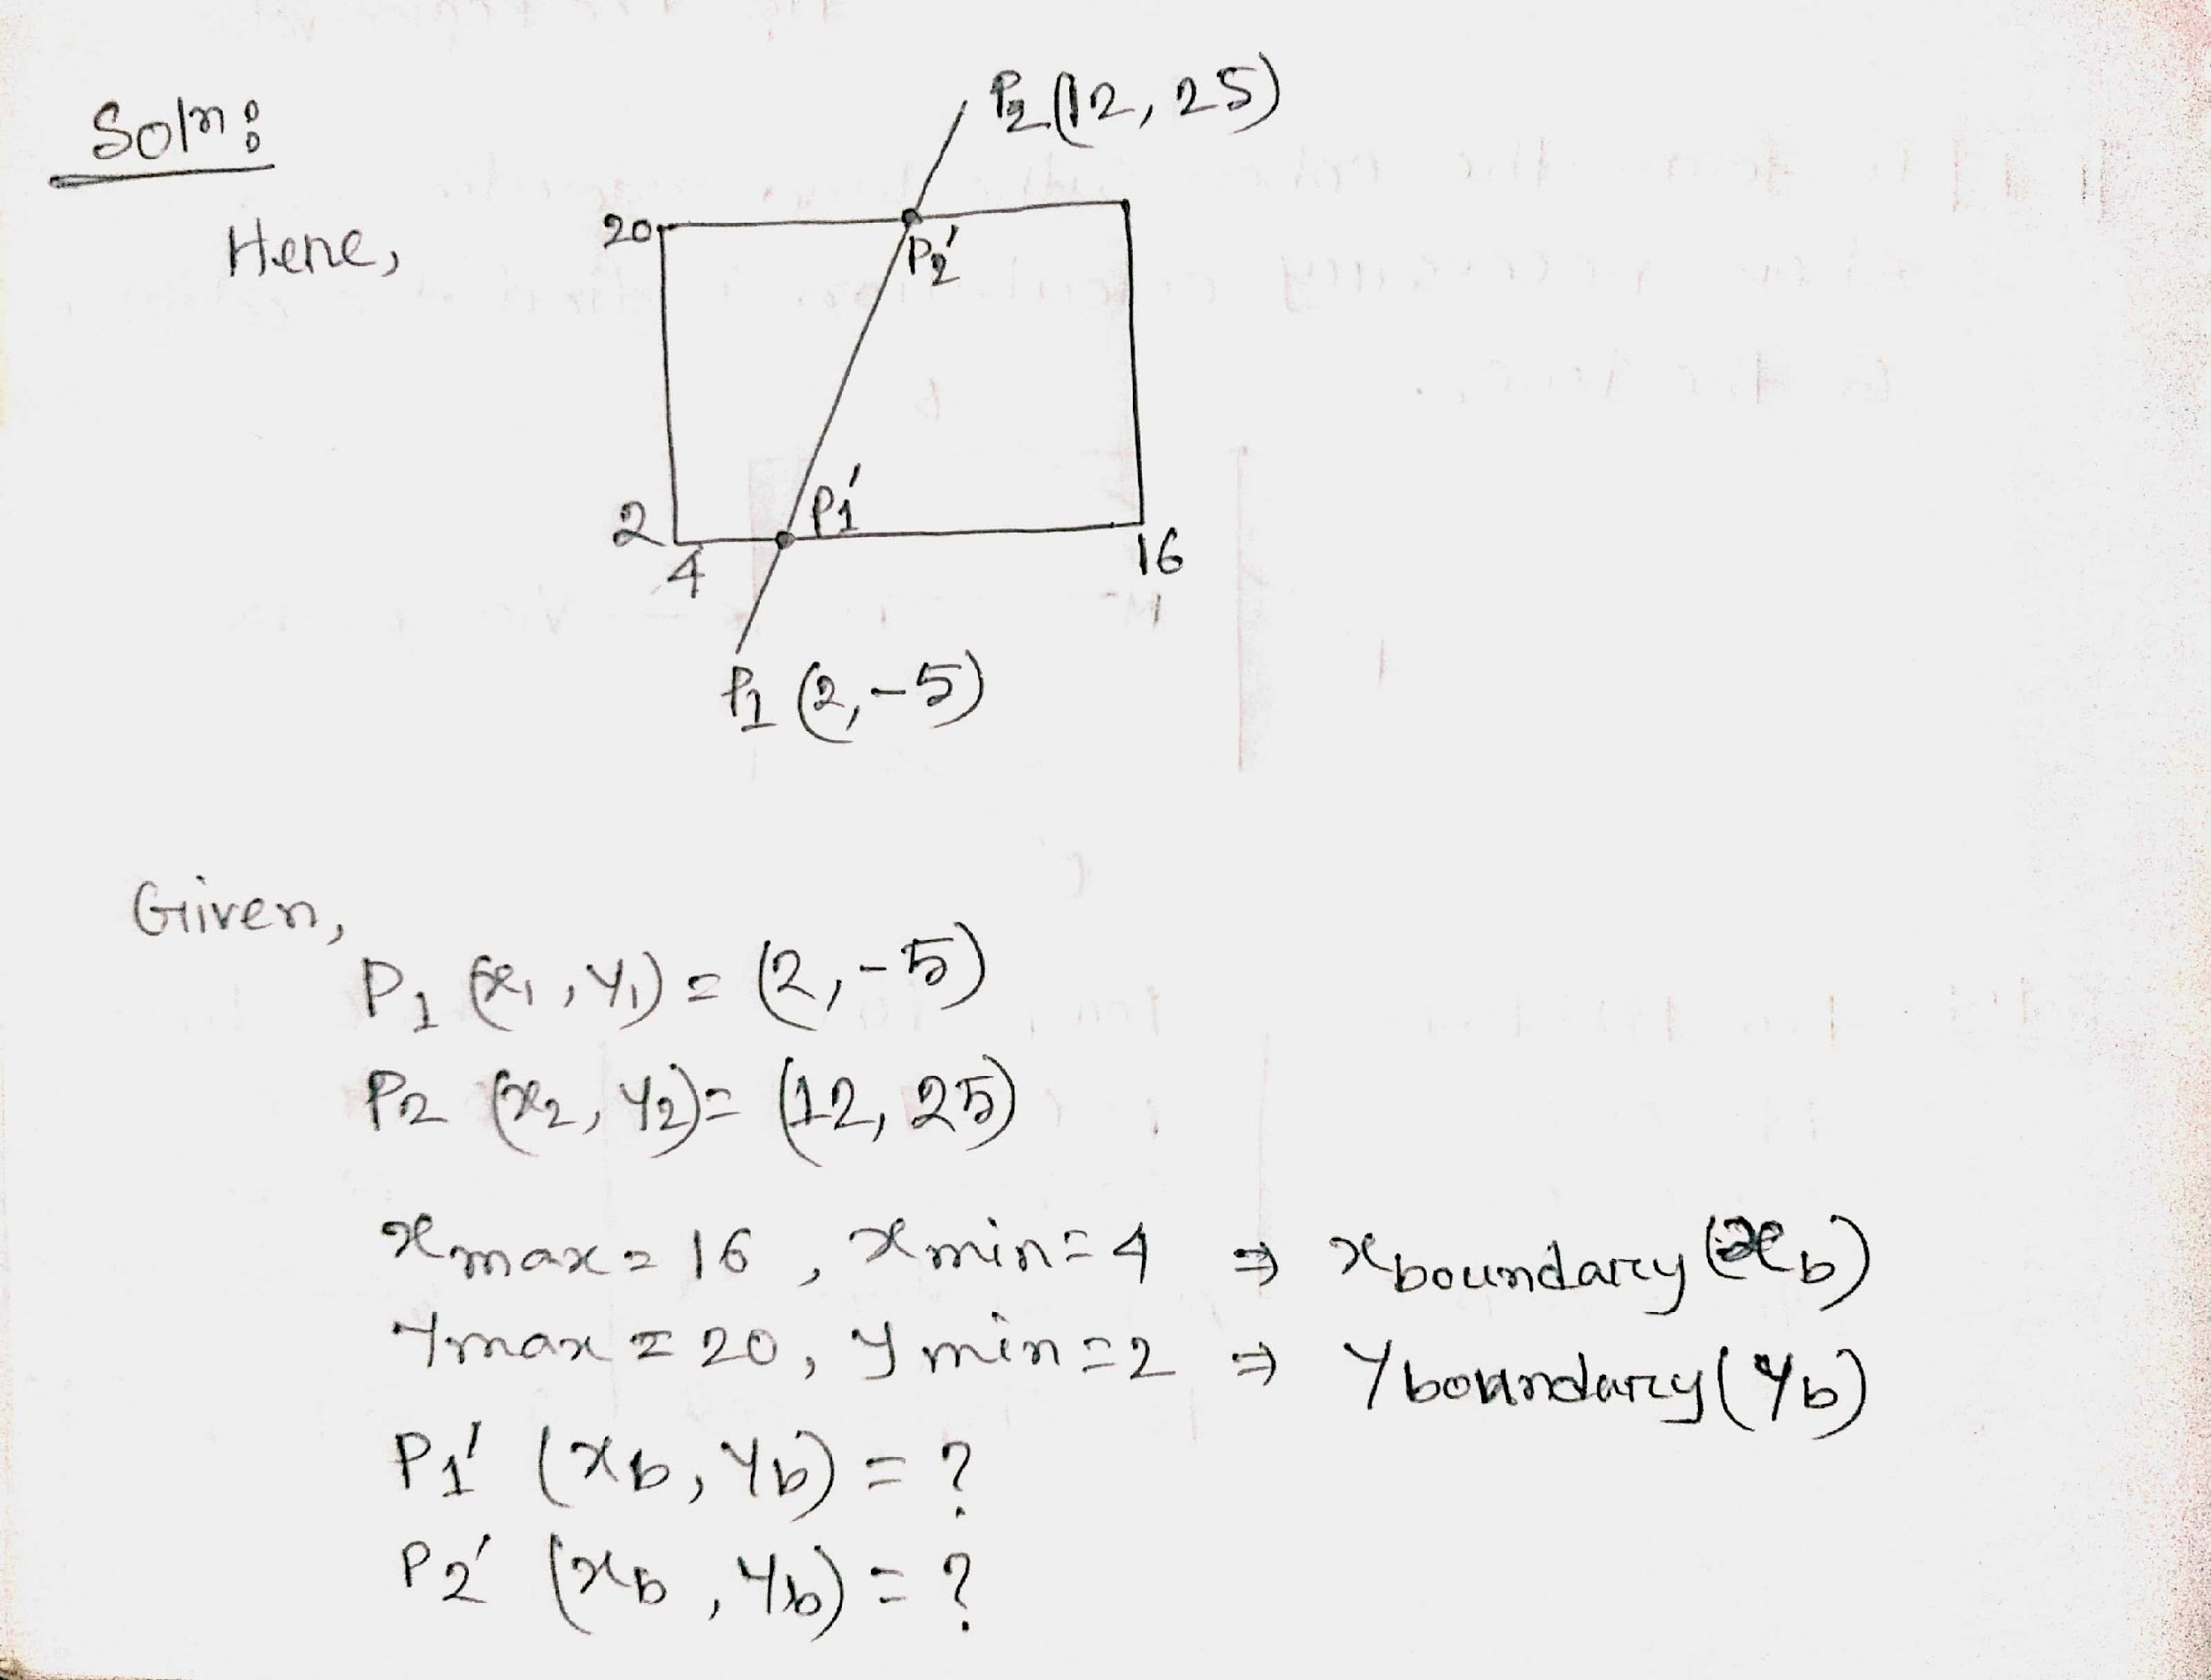 Soln:
P₂(12, 25)
Here,
20
P₂'
P₁'
2
4
16
P₁ (2, -5)
Given,
P₁ (x₁, y₁) = (2, -5)
P₂ (x₂, y₂) = (12, 25)
xmax = 16, xmin = 4 ⇒ xboundary (xb)
Ymax = 20, ymin = 2 ⇒ Yboundary (Yb)
P₁' (xb, yb) = ?
P₂' (xb, yb) = ?